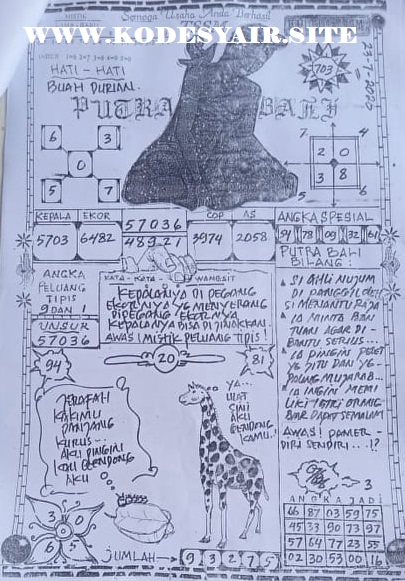 Semoga Usaha Anda Berhasil
WWW.KODESYAIR.SITE
HATI - HATI
BUAH DURIAN.
PUTRA BALI
703
6 3
0
5 7
7 4
2 0
3 8
5 6
KEPALA EKOR 57036 COP AS ANGKA SPESIAL
5703 6482 48921 3974 2058 94 78 09 32 61
PUTRA BALI
BILANG :
ANGKA
PELUANG
TIPIS
9 DAN 1
UNSUR
57036
KATA - KATA WANGSIT
KEPALANYA DI PEGANG
EKORNYA YG MENYERANG
DIPEGANG EKORNYA
KEPALANYA BISA DI JINAKKAN
AWAS! MISTIK PELUANG TIPIS!
SI AHLI NUJUM
DI PANGGIL OLEH
SI MENANTU RAJA
IA MINTA BAN
TUAN AGAR DI -
BANTU SERIUS...
IA PINGIN PELET
YG JITU DAN YG -
IA INGIN MEMI
LIKI ISTRI ORANG
AWAS! PAMER -
DIRI SENDIRI ...!?
94
20
81
KAKIMU
PANJANG
KURUS...
AKU PINGIN
AKU
YA...
ULAT
SINI
AKU
GENDONG
KAMU..!
3
3 0
6 5
ANGKA JADI
66 87 03 59 75
45 33 90 73 97
57 64 77 23 55
02 30 53 00 16
JUMLAH 9 3 2 7 5